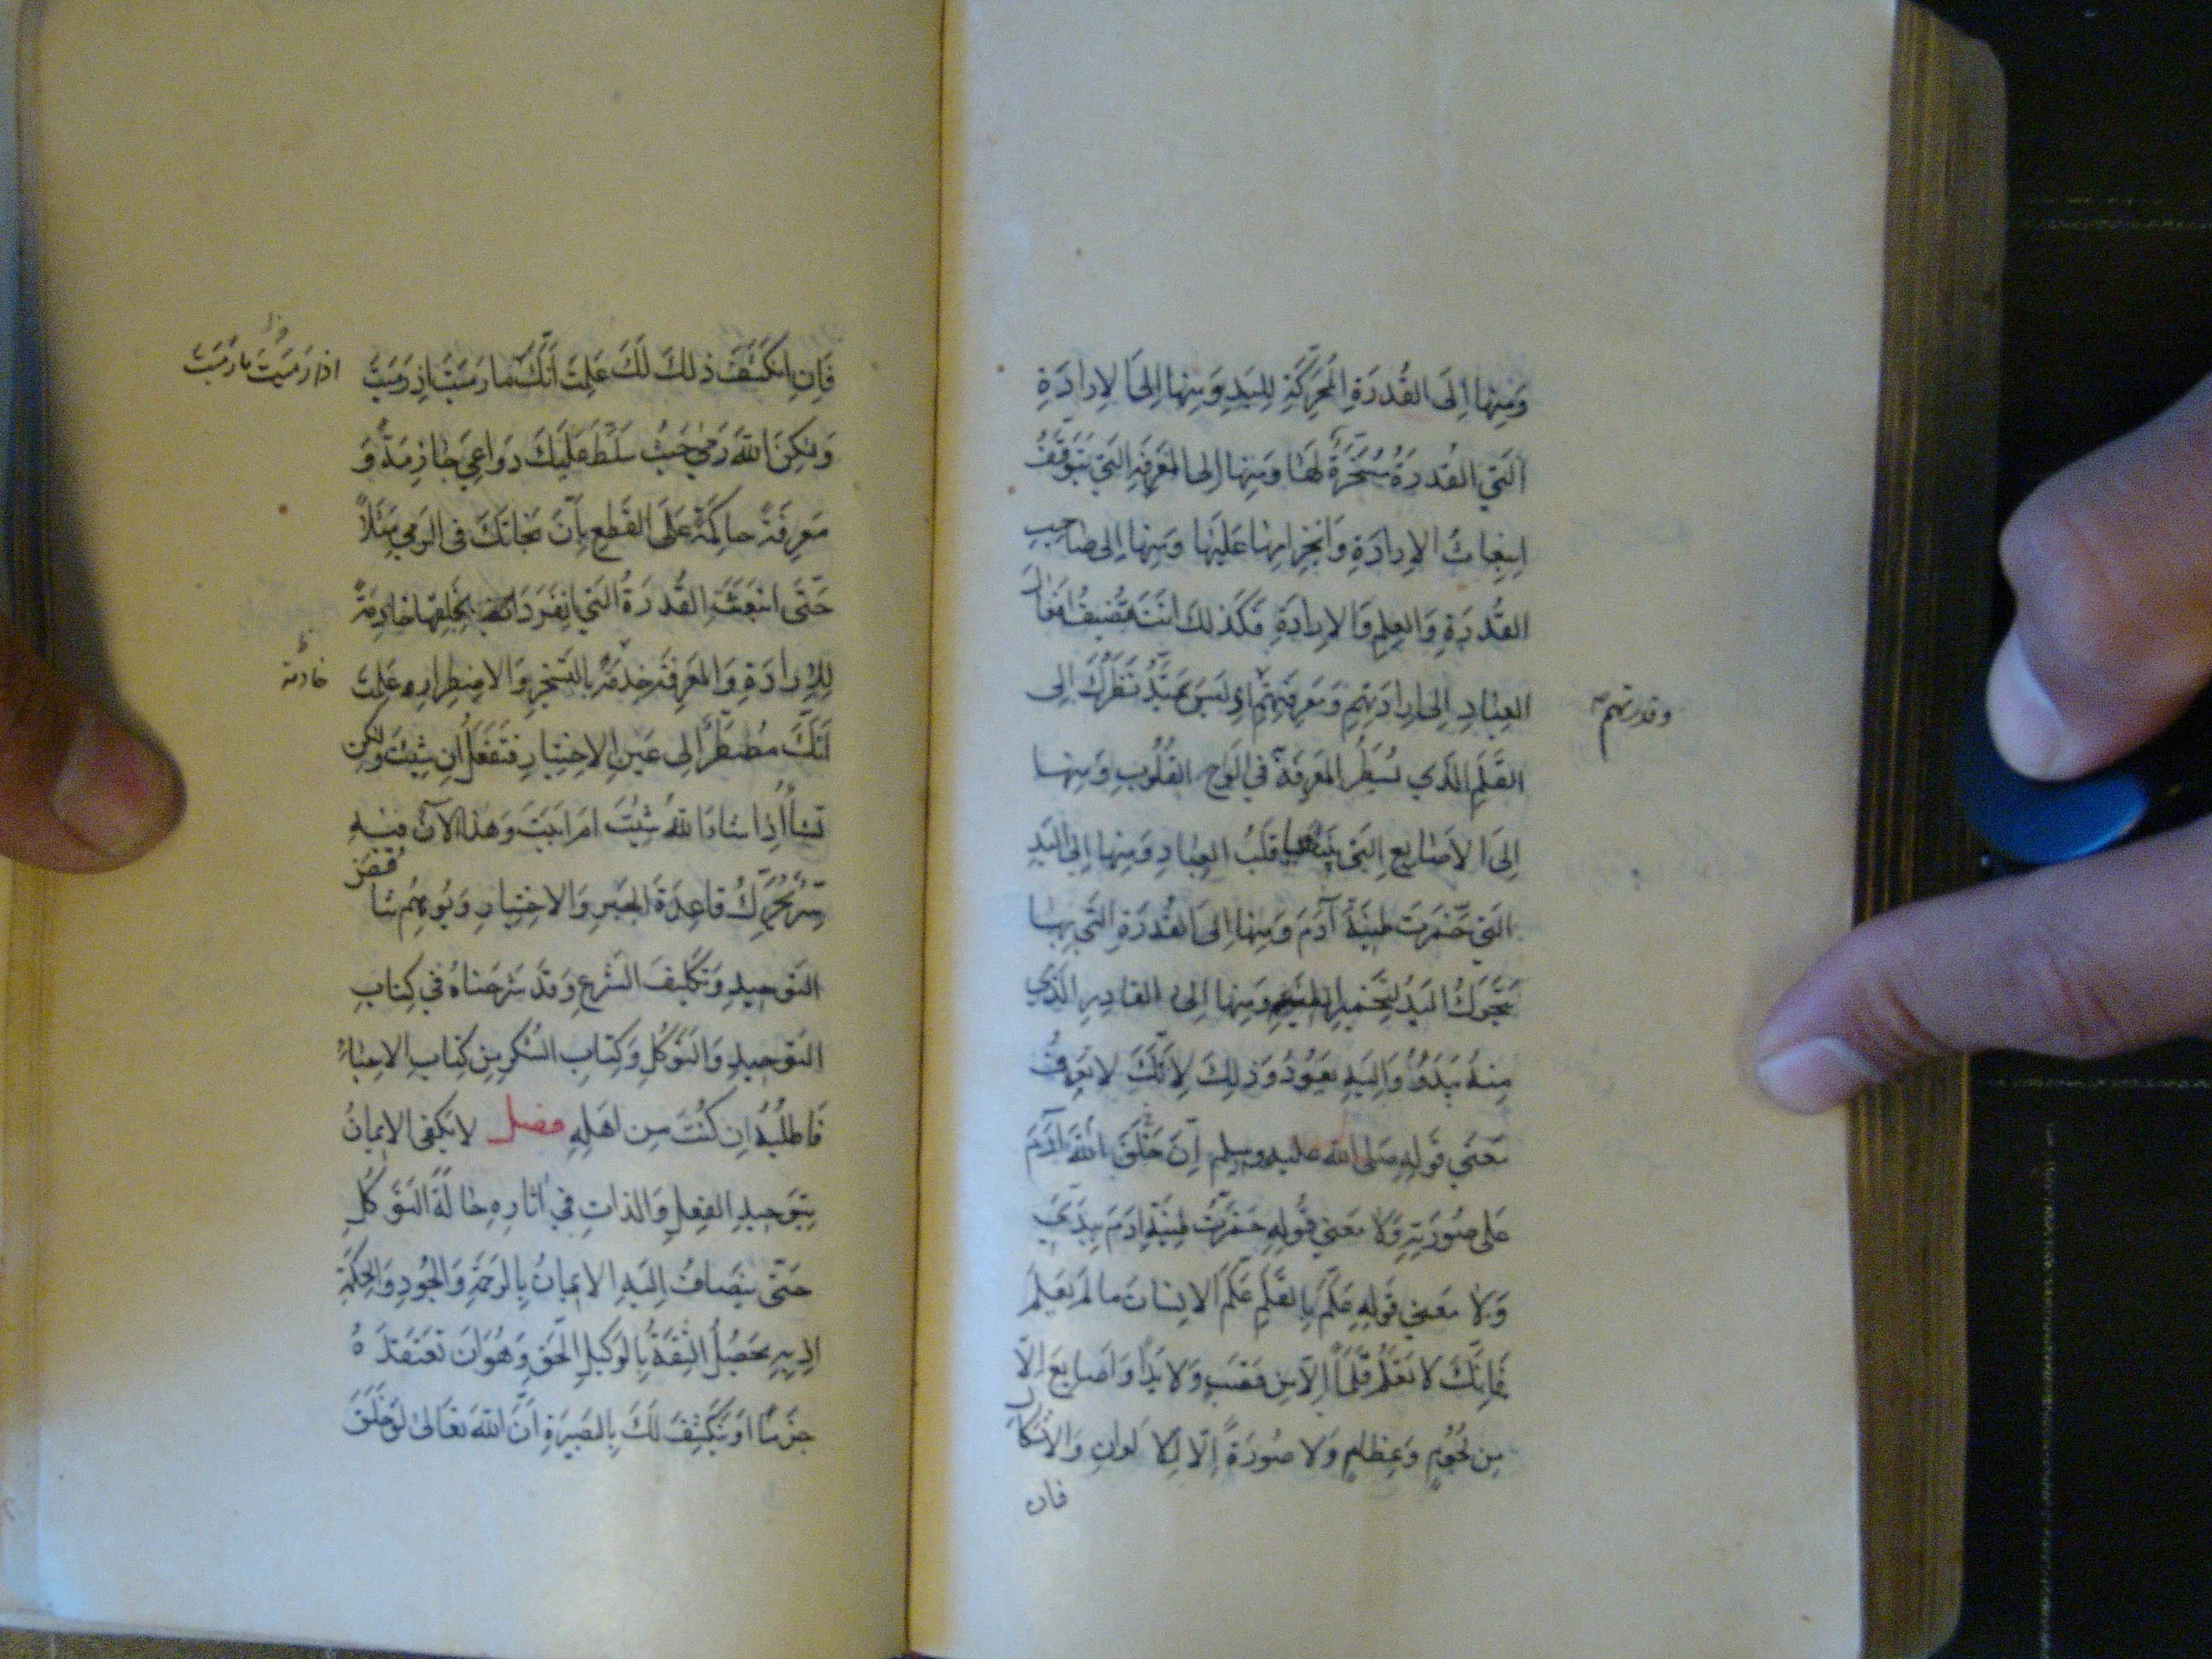 وَمِنْها اِلَى القُدرَةِ المُحَرِّكَةِ لِليَدِ وَمِنها اِلَى الاِرادَةِ
الَّتي القُدرَةُ مُسَخَّرَةٌ لَها وَمِنها اِلى المَعرِفَةِ الَّتي يَتَوَقَّفُ
اِنبِعاثُ الاِرادَةِ وَانجِزامُها عَلَيها وَمِنها اِلى صاحِبِ
القُدرَةِ وَالعِلمِ وَالاِرادَةِ فَكَذلكَ اَنتَ تُضيفُ اَفعالَ
العِبادِ اِلى اِرادَتِهِم وَمَعرِفَتِهِم اِذ لَيسَ يَمتَدُّ نَظَرُكَ اِلى
وقدرتهم
القَلَمِ الَّذي يُسَطِّرُ المَعرِفَةَ في لَوحِ القُلُوبِ وَمِنها
اِلَى الاَصابِعِ الَّتي قَلبُ العِبادِ وَمِنها اِلى اليَدِ
الَّتي خَمَّرَت طينَةَ آدَمَ وَمِنها اِلَى القُدرَةِ الَّتي بِها
تَحَرَّكُ اليَدُ لِتَخميرِ وَمِنها اِلى القادِرِ الَّذي
مِنهُ يَبدَؤُ وَاِلَيهِ يَعُودُ وَذلِكَ لِاَنَّكَ لا تَعرِفُ
مَعنى قَولِهِ صَلى الله عليه وسلم اِنَّ خَلَقَ اللهَ آدَمَ
عَلى صُورَتِهِ وَلا مَعنى قَولِهِ خَمَّرتُ طينَةَ ادَمَ بِيَدَيَّ
وَلا مَعنى قَولِهِ عَلَّمَ بِالقَلَمِ عَلَّمَ الاِنسانَ ما لَم يَعلَم
فَاِنَّكَ لا تَعلَمُ قَلَماً اِلّا مِن قَصَبٍ وَلا يَداً وَاَصابِعَ اِلّا
مِن لُحُومٍ وَعِظامٍ وَلا صُورَةً اِلّا لِلاَلوانِ وَالاَشكالِ
فان
فَاِنِ انكَشَفَ ذلكَ لَكَ عَلِمتَ اَنَّكَ ما رَمَيتَ اِذ رَمَيتَ
اذا رَميتَ ما رَمَيتَ
وَلكِنَّ اللهَ رَمى حَيثُ سَلَّطَ عَلَيكَ دَواعِيَ جازِمَةً وَ
مَعرِفَةً حاكِمَةً عَلَى القَطعِ بِاَنَّ نَجاتَكَ فِى الرَّميِ مَثَلاً
حَتّى انبَعَثَتِ القُدرَةُ الَّتي انفَرَدَ بِخَلقِها خادِمَةً
لِلاِرادَةِ وَالمَعرِفَةِ خِدمَةً بِالتَّسخيرِ وَالاِضطِرارِ عَلِمتَ
خادمة
اَنَّكَ مُضطَرٌّ اِلى عَينِ الاِختِيارِ فَتَفعَلُ اِن شِئتَ وَلكِن
تَشاءُ اِذا شاءَ اللهُ شِئتَ اَم اَبَيتَ وَهذا الآنَ فيهِ
سِرٌّ يُحَرِّكُ قاعِدَةَ الجَبرِ وَالاِختِيارِ وَيُوهِمُ تَناقُضَ
التَّوحيدِ وَتَكليفَ الشَّرعِ وَقَد شَرَحناهُ في كِتابِ
التَّوحيدِ وَالتَّوَكُّلِ وَكِتابِ الشُّكرِ مِن كِتابِ الاِحياءِ
فَاطلُبهُ اِن كُنتَ مِن اَهلِهِ فصل لا يَكفِى الاِيمانُ
بِتَوحيدِ الفِعلِ وَالذّاتِ في اثارَةِ حالَةِ التَّوَكُّلِ
حَتّى يَنضافُ اِلَيهِ الاِيمانُ بِالرَّحمَةِ وَالجُودِ وَالحِكمَةِ
اِذ بِهِ يَحصُلُ الثِّقَةُ بِالوَكيلِ الحَقِّ وَهُوَ اَن تَعتَقِدَهُ
جَزماً اَو يَنكَشِفَ لَكَ بِالبَصيرَةِ اَنَّ اللهَ تَعالى لَو خَلَقَ